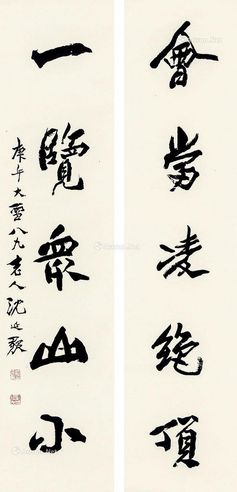 會當凌絕頂
一覽眾山小
庚午大雪八九老人沈延毅